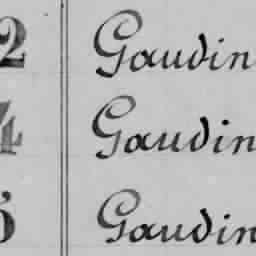 2 Gaudin
4 Gaudin
5 Gaudin